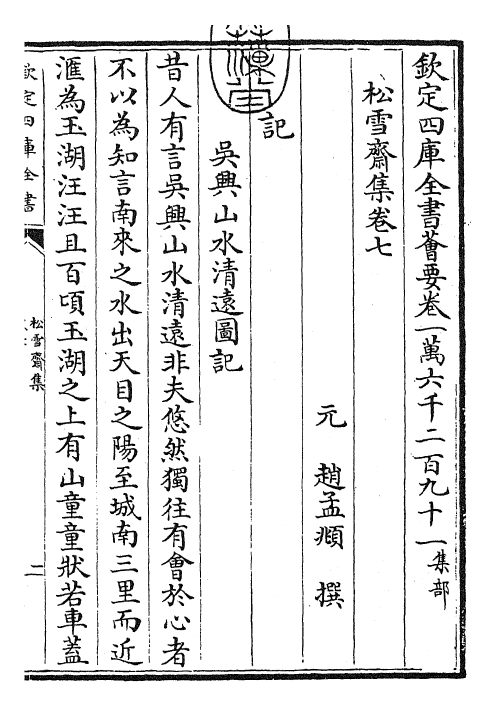 欽定四庫全書薈要卷一萬六千二百九十一集部
松雪齋集卷七
元 趙孟頫 撰
記
吳興山水清遠圖記
昔人有言吳興山水清遠非夫悠然獨往有會於心者
不以為知言南來之水出天目之陽至城南三里而近
滙為玉湖汪汪且百頃玉湖之上有山童童狀若車蓋
欽定四庫全書
松雪齋集
二